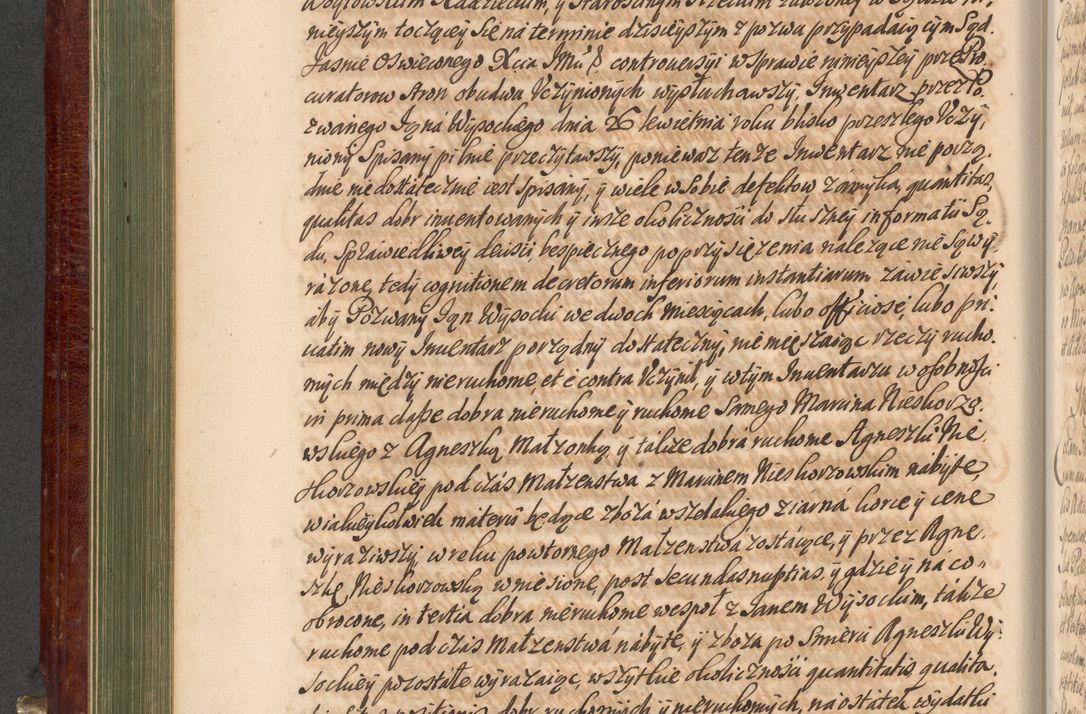 nieyszym toczącey się na terminie dzisieyszym z pozwu przypadaiącym Sąd
Jaśnie Oswieconego Xcia Jmći controuersyi w sprawie ninieyszey przez Pro
curatorow stron obudwu Vczynionych wysłuchawszy, Inwentarz przez Po
zwanego Jana Wysockiego dnia 26 kwietnia roku blisko przeszłego Vczy,
niony spisany pilnie przeczytawszy, poniewaz tenze Inwentarz nie porzą,
dnie nie dostatecznie iest spisany, y wiele w sobie defektow zamyka, quantitas,
qualitas dobr inuentowanych y insze okolicznosci do słuszney informatii Są,
du, sprawiedliwey decisii, bespiecznego poprzysięzenia nalezące nie są wy,
razone, tedy cognitionem decretorum inferiorum instantiarum zawiesiwszy,
aby Pozwany Jan Wysocki we dwoch Miesiącach, lubo officiose, lubo pri,
uatim nowy Inuentarz porządny dostateczny, nie mięszaiąc rzeczy rucho,
mych między nieruchome, et e contra Vczynił, y w tym Inuentarzu w osobnosci
in prima classe dobra nieruchome y ruchome samego Marcina Nieskorzo,
wskiego z Agneszką Małzonką, y takze dobra ruchome Agneszki Nie,
skorzowskiey pod czas Małzenstwa z Marcinem Nieskorzowskim nabyte,
w iakieykolwiek materii będące zboza wszelakiego ziarna korce y cene
wyraziwszy, w roku powtornego Małzenstwa zostaiące, y przez Agne,
szkę Nieskorzowską wniesione, post secundas nuptias, y gdzie y na co
obrocone, in tertia dobra nieruchome wespoł z Janem Wysockim, takze
ruchome pod czas Małzenstwa nabyte, y zboza po smierci Agneszki Wy,
sockiey pozostałe wyrazaiąc, wszytkie okolicznosci quantitatis, qualita,
dobr ruchomych y nieruchomych, na ostatek wydatki